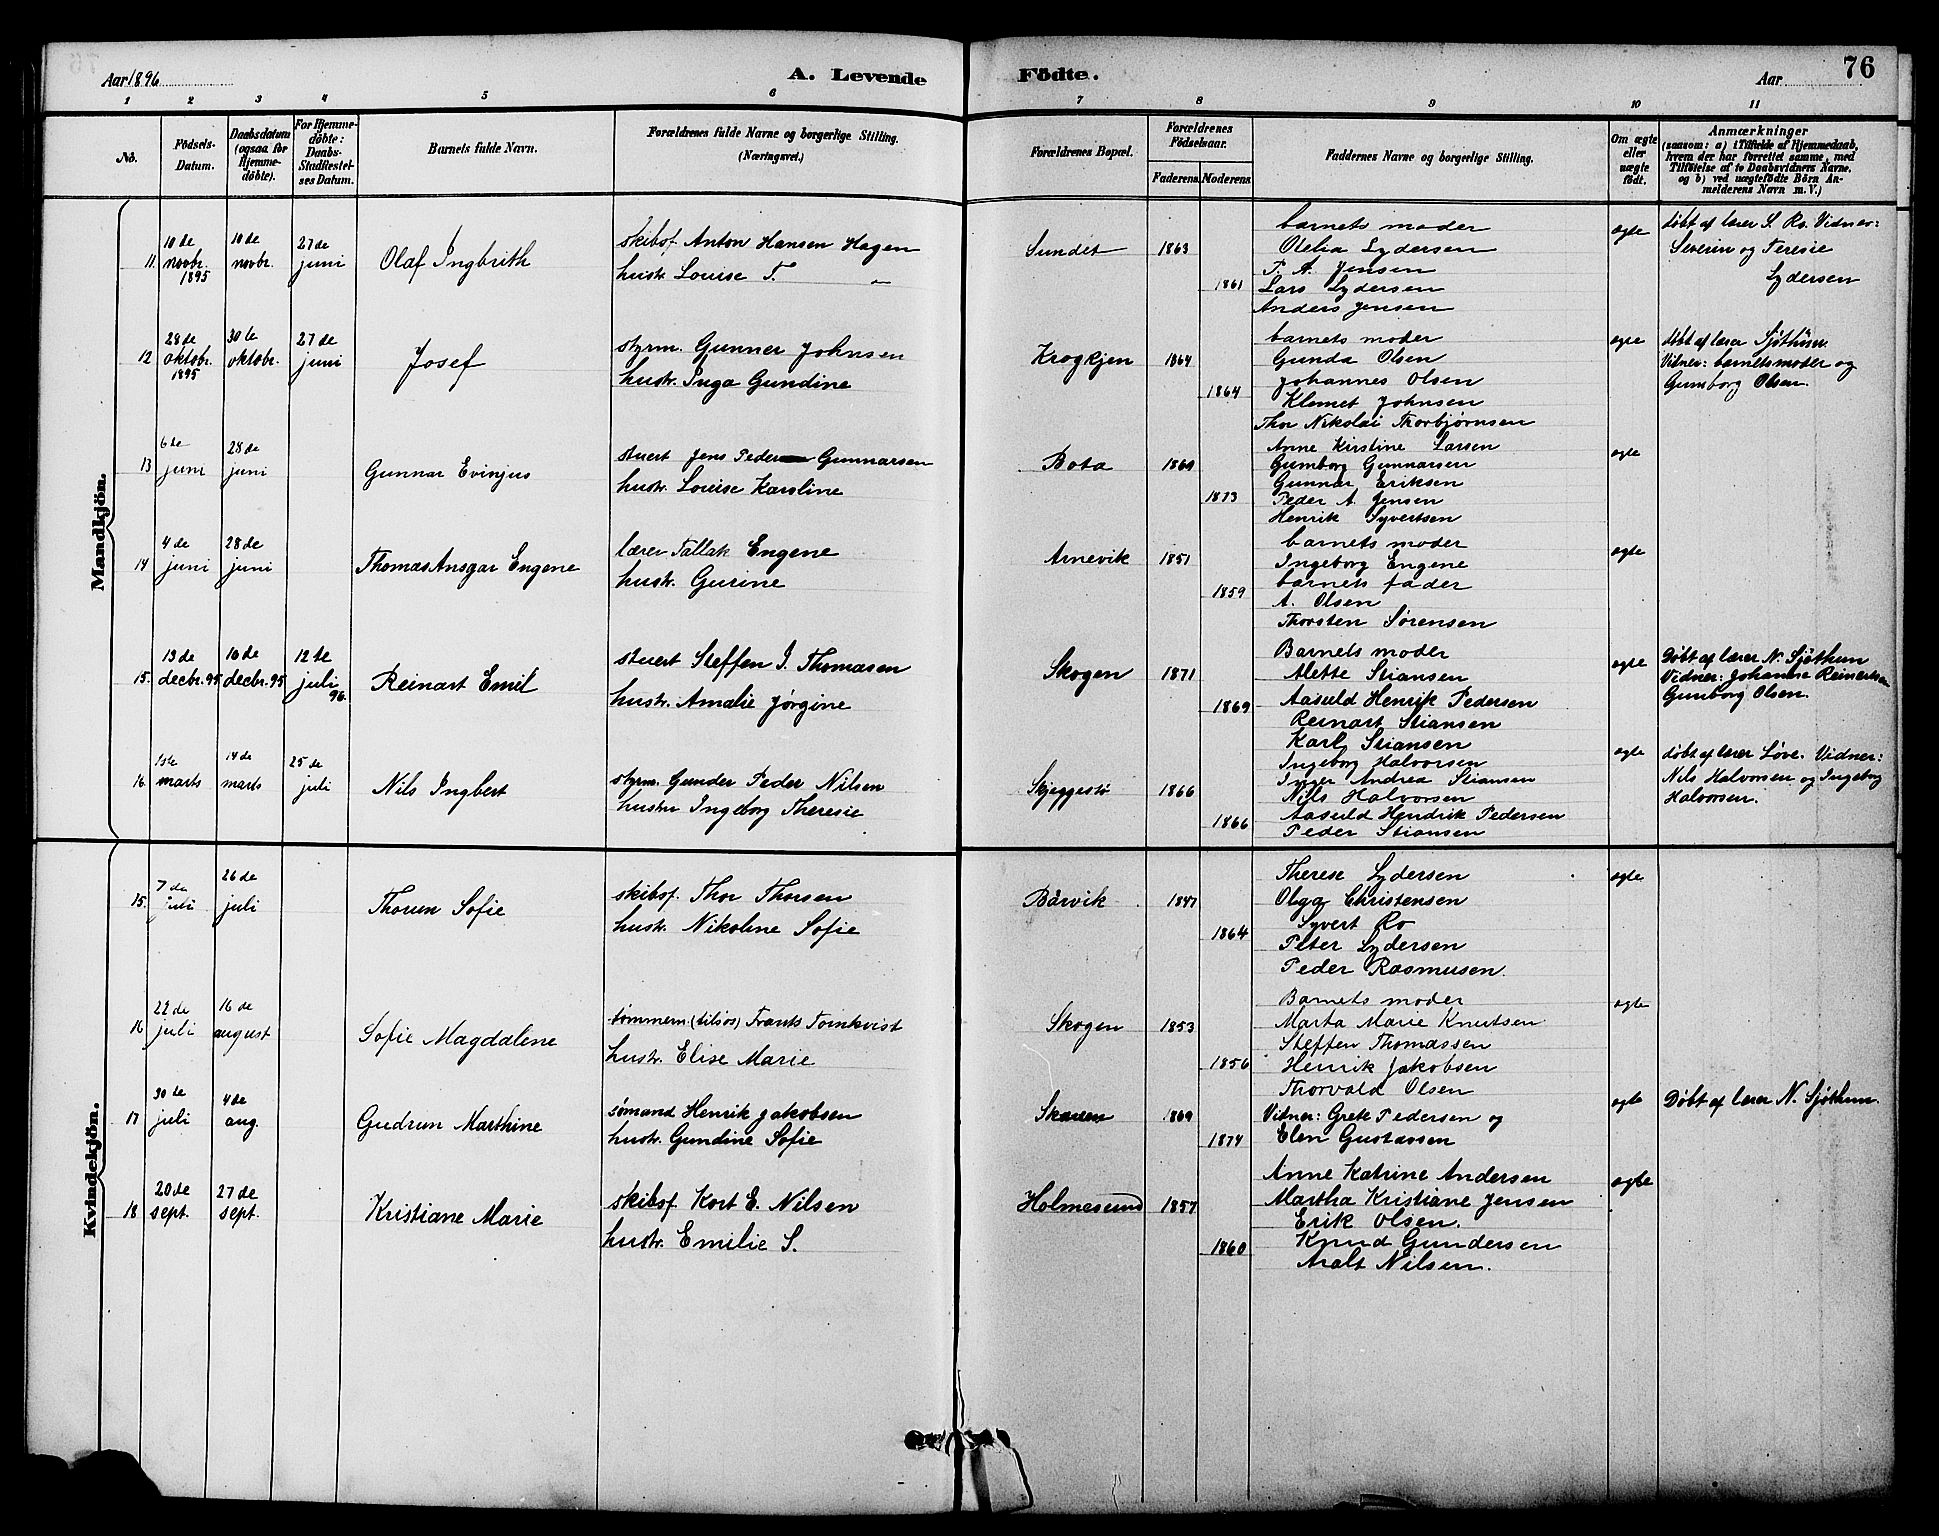 Aar 1896
A. Levende Födte.
Aar
76
1 2 3 4 5 6 7 8 9 10 11
No.
Födsels-Datum.
Daabsdatum (ogsaa for Hjemme-döbte).
For Hjemme-döbte: Daabs-Stadfæstel-ses Datum.
Barnets fulde Navn.
Forældrenes fulde Navne og borgerlige Stilling. (Næringsvei.)
Forældrenes Bopæl.
Forældrenes Födselsaar.
Faderens. Moderens.
Faddernes Navne og borgerlige Stilling.
Om ægte eller uægte födt.
Anmærkninger
(saasom: a) i Tilfælde af Hjemmedaab,
hvem der har forrettet samme, med
Tilföielse af to Daabsvidners Navne,
og b) ved uægtefödte Börn An-
melderens Navn m. V.)
Mandkjön.
11. 10de novbr. 1895 10de novbr. 27de juni Olaf Ingbrith
skibsf Anton Hansen Hagen
hustr. Louise T. "
Sundet 1863 1861
barnets moder
Olelia Lydersen
P. A. Jensen
Lars Lydersen
Anders Jensen
ægte
døbt af lærer S. Ro. Vidner:
Severin og Teresie
Lydersen
12 28de oktobr. 1895 30te oktobr. 27de juni Josef
styrm. Gunner Johnsen
hustr. Inga Gundine
Krogkjen 1864 1864
barnets moder
Gunda Olsen
Johannes Olsen
Klemet Johnsen
Thor Nikolai Thorbjørnsen
ægte
døbt af lærer Sjøthun.
Vidner: barnets moder og
Gunborg Olsen.
13 6te juni 28de juni Gunnar Evinjus
stuert Jens Peder Gunnarsen
hustr. Louise Karoline
Bota 1860 1873
Anne Kirstine Larsen
Gumborg Gunnarsen
Gunnar Eriksen
Peder A. Jensen
Henrik Syvertsen
ægte
14 4de juni 28de juni Thomas Ansgar Engene
lærer Tallak Engene
hustr. Gurine
Arnevik 1851 1859
barnets moder
Ingeborg Engene
barnets fader
A. Olsen
Thorsten Sørensen
ægte
15. 13de decbr. 95 16de decbr. 95 12te juli 96. Reinart Emil
stuert Steffen J. Thomasen
hustr. Amalie Jørgine
Skogen 1871 1869
Barnets moder
Alette Stiansen
Aasuld Henrik Pedersen
Reinart Stiansen
Karl Stiansen
ægte
Døbt af lærer N. Sjøthun
Vidner: Johanne Reinertsen
Gunborg Olsen.
16. 1ste marts 14de marts 25de juli Nils Ingbert
styrm. Gunder Peder Nilsen
hustru Ingeborg Theresie
Skjeggestø 1866 1866
Ingeborg Halvorsen
Inger Andrea Stiansen
Nils Halvorsen
Aasuld Hendrik Pedersen
Peder Stiansen
ægte
døbt af lærer Løve. Vidner:
Nils Halvorsen og Ingeborg
Halvorsen.
Kvindekjön.
15. 7de juli 26de juli Thorun Sofie
skibsf. Thor Thorsen
hustr. Nikoline Sofie
Bårvik 1847 1864
Therese Lydersen
Olga Christensen
Syvert Ro
Peter Lydersen
Peder Rasmusen.
ægte
16 22de juli 16de august Sofie Magdalene
tømmerm. Frants Tornkvist
hustr. Elise Marie
Skogen 1853 1856
Barnets moder
Marta Marie Knutsen
Steffen Thomassen
Henrik Jakobsen
Thorvald Olsen
ægte
17 30te juli 4de aug. Gudrun Marthine
sømand Henrik Jakobsen
hustr. Gundine Sofie
1869 1874
Vidner: Grete Pedersen og
Elen Gustavsen
ægte
Døbt af lærer N. Sjøthun.
18 20de sept. 27de sept. Kristiane Marie
skibsf Kort E. Nilsen
hustr. Emilie S.
Holmesund 1857 1860
Anne Katrine Andersen
Martha Kristiane Jensen
Erik Olsen.
Knud Gundersen
Aralt Nilsen.
ægte